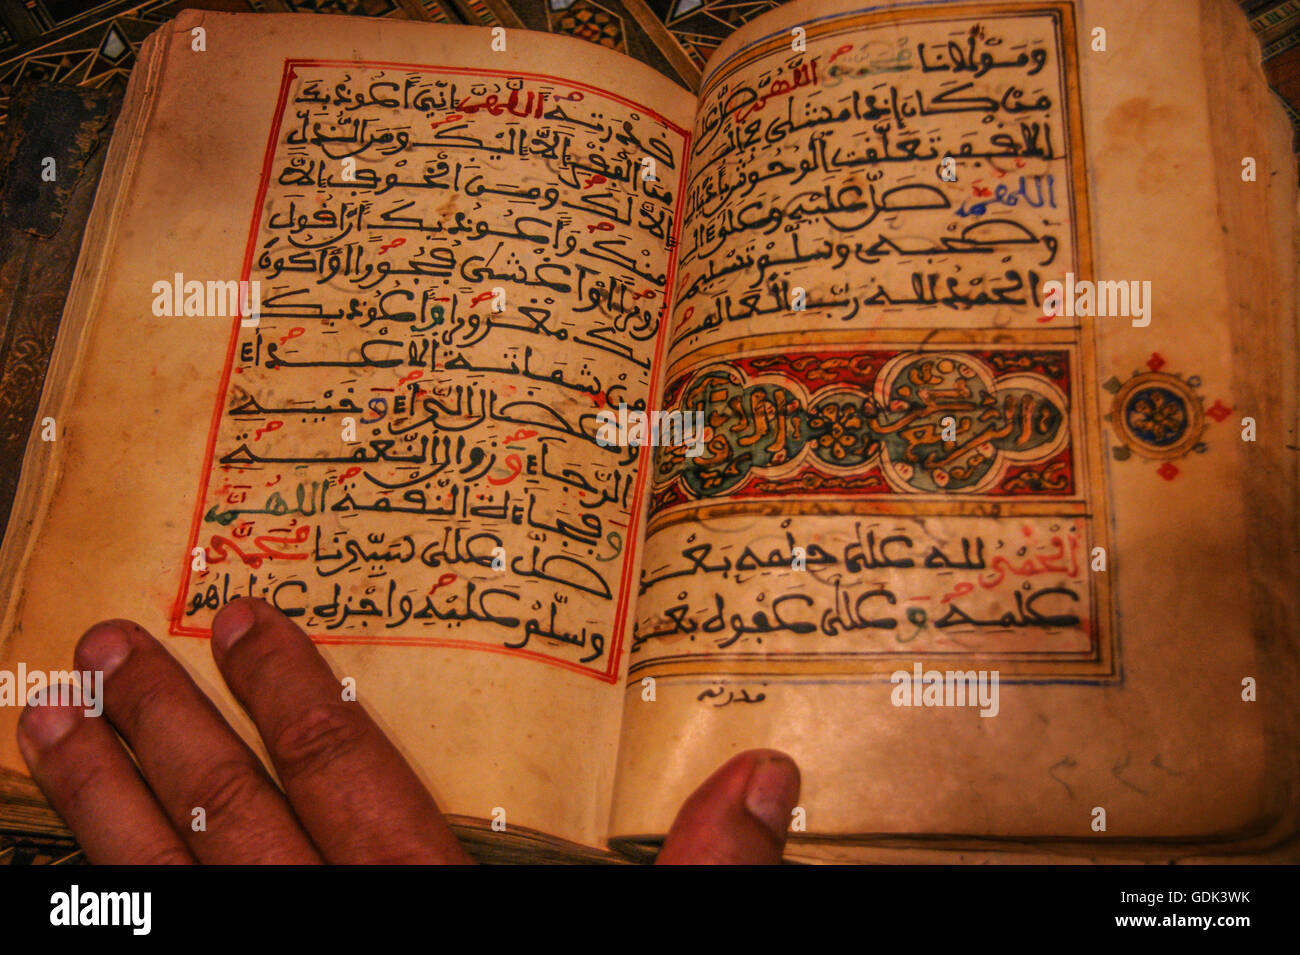 ومولانا محمد اللهم صل على
من كان إذا مشى في البر
الأقفر تعلقت الوحوش بأذياله
اللهم صل عليه وعلى آله
وصحبه وسلم تسليما
والحمد لله رب العالمين
الحمد لله على حلمه بعد
علمه وعلى عفوه بعد
قدرته
قدرته اللهم إني أعوذ بك
من الفقر إلا إليك ومن الذل
إلا لك ومن الخوف إلا
منك وأعوذ بك أن أقول
زورا أو أغشى فجورا أو أكون
بك مغرورا وأعوذ بك
من شماتة الأعداء
وعضال الداء وخيبة
الرجاء وزوال النعمة
وفجاءة النقمة اللهم
صل على سيدنا محمد
وسلم عليه واجزه عنا ما هو
alamy stock photo
GDK3WK
www.alamy.com